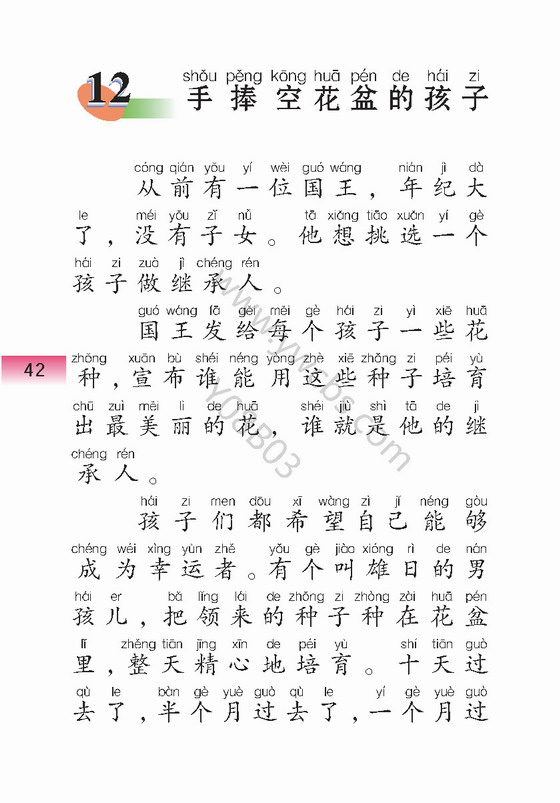 12
shǒu pěng kōng huā pén de hái zi
手捧空花盆的孩子
cóng qián yǒu yí wèi guó wáng nián jì dà
从前有一位国王，年纪大
le méi yǒu zǐ nǚ tā xiǎng tiāo xuǎn yí gè
了，没有子女。他想挑选一个
hái zi zuò jì chéng rén
孩子做继承人。
guó wáng fā gěi měi gè hái zi yì xiē huā
国王发给每个孩子一些花
42
zhǒng xuān bù shéi néng yòng zhè xiē zhǒng zi péi yù
种，宣布谁能用这些种子培育
chū zuì měi lì de huā shéi jiù shì tā de jì
出最美丽的花，谁就是他的继
chéng rén
承人。
hái zi men dōu xī wàng zì jǐ néng gòu
孩子们都希望自己能够
chéng wéi xìng yùn zhě yǒu gè jiào xióng rì de nán
成为幸运者。有个叫雄日的男
hái er bǎ lǐng lái de zhǒng zi zhòng zài huā pén
孩儿，把领来的种子种在花盆
lǐ zhěng tiān jīng xīn de péi yù shí tiān guò
里，整天精心地培育。十天过
qù le bàn gè yuè guò qù le yí gè yuè guò
去了，半个月过去了，一个月过
www.ywcbs.com
Y08B03